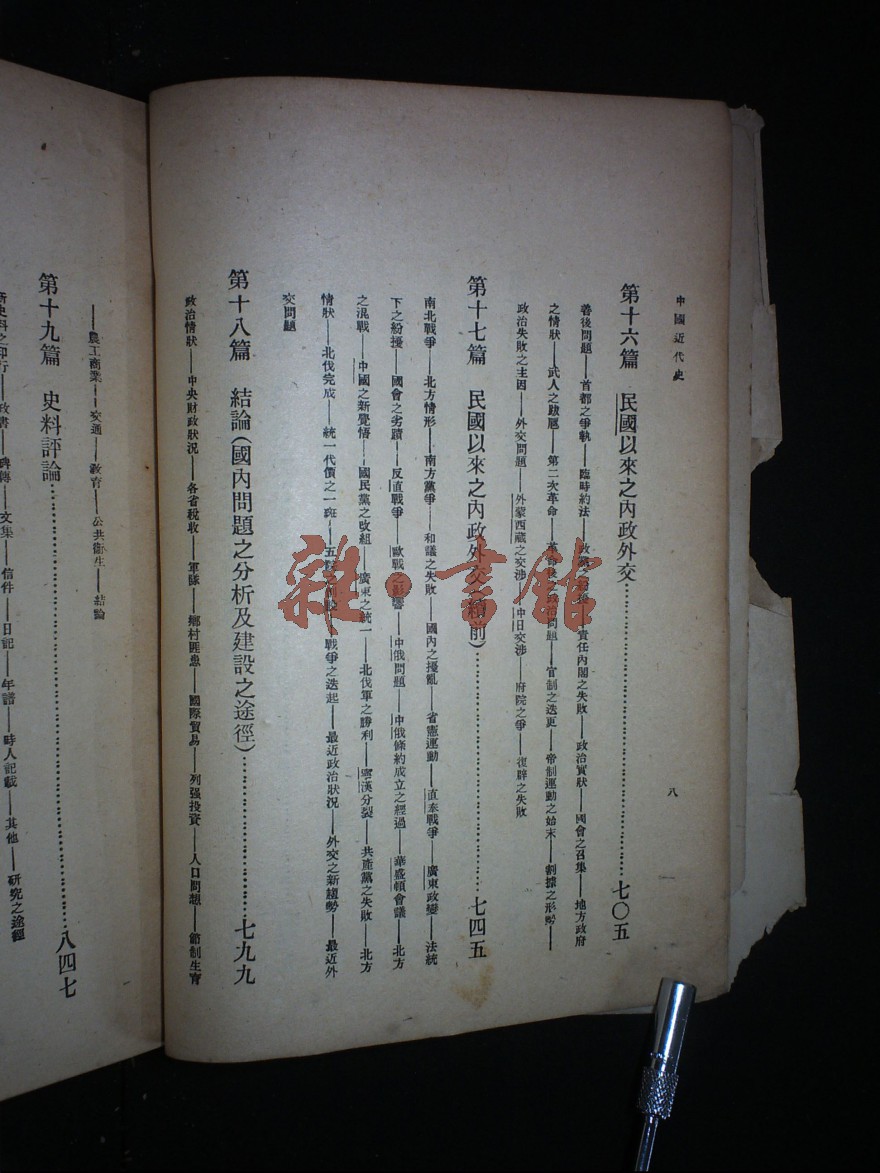 中國近代史
八
第十六篇 民國以來之內政外交…………七〇五
善後問題——首都之爭執——臨時約法——政黨之——責任內閣之失敗——政治實狀——國會之召集——地方政府
之情狀——武人之跋扈——第二次革命——革命後之政治問題——官制之迭更——帝制運動之始末——割據之形勢——
政治失敗之主因——外交問題——外蒙西藏之交涉——中日交涉——府院之爭——復辟之失敗
第十七篇 民國以來之內政外交(續前)…………七四五
南北戰爭——北方情形——南方黨爭——和議之失敗——國內之擾亂——省憲運動——直奉戰爭——廣東政變——法統
下之紛擾——國會之劣蹟——反直戰爭——歐戰之影響——中俄問題——中俄條約成立之經過——華盛頓會議——北方
之混戰——中國之新覺悟——國民黨之改組——廣東之統一——北伐軍之勝利——寧漢分裂——共產黨之失敗——北方
情狀——北伐完成——統一代價之一斑——五——戰爭之迭起——最近政治狀況——外交之新趨勢——最近外
交問題
第十八篇 結論(國內問題之分析及建設之途徑)…………七九九
政治情狀——中央財政狀況——各省稅收——軍隊——鄉村匪患——國際貿易——列强投資——人口問題——節制生育
——農工商業——交通——教育——公共衞生——結論
第十九篇 史料評論…………八四七
新史料之印行——政書——碑傳——文集——信件——日記——年譜——時人記載——其他——研究之途徑
雜·書館